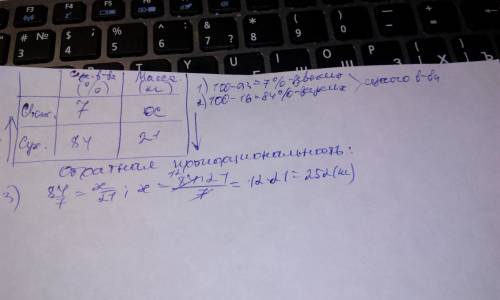 F3 F4 F5 F6 F7 F8 F9 F10
# № 3 $ ; 4 % 5 ^ : 6 & ? 7 * 8 ( 9 ) 0
(%) Масса (кг)
7 x
Сух. 84 21
1) 100-93=7%
2) 100-16=84%
сухого в-ва
Обратная пропорциональность:
3) 84/7 = x/21; x = 84·21/7 = 12·21 = 252 (кг)